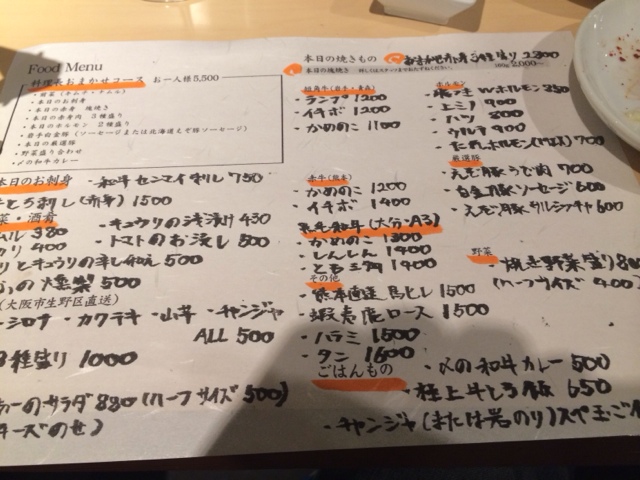 Food Menu
料理長おまかせコース お一人様5,500
・前菜(キムチ・ナムル)
・本日のお刺身
・本日の赤身 塊焼き
・本日の赤身肉 3種盛り
・本日のホルモン 2種盛り
・岩手白金豚(ソーセージまたは北海道えぞ豚ソーセージ)
・本日の厳選豚
・野菜盛り合わせ
・〆の和牛カレー
本日のお刺身 ・和牛センマイ刺し 750
牛とろ刺し(赤身) 1500
菜・酒肴
・キュウリの浅漬け 430
ムル 380
・トマトのお浸し 500
400
とキュウリの辛し和え 500
の燻製 500
(大阪市生野区直送)
・シロナ ・カクテキ ・山芋 ・チャンジャ
ALL 500
種盛り 1000
のサラダ 880(ハーフサイズ 500)
チーズのせ)
本日の焼きもの
2800
本日の塊焼き
100g 2,000〜
短角牛(岩手・青森)
・ランプ 1200
・イチボ 1200
・かめのこ 1100
赤牛(熊本)
・かめのこ 1200
・イチボ 1400
黒毛和牛(大分・A3)
・かめのこ 1300
・しんしん 1400
・とも三角 1400
その他
・熊本直送馬ヒレ 1500
・蝦夷鹿ロース 1500
・ハラミ 1500
・タン 1600
ごはんもの
ホルモン
Wホルモン 850
・上ミノ 900
・ハツ 800
・ウルテ 900
700
厳選豚
・えぞ豚うで肉 700
・白金豚ソーセージ 600
・えぞ豚サルシッチャ 600
野菜
・焼き野菜盛り 880
(ハーフサイズ 400)
・〆の和牛カレー 500
・極上牛とろ飯 650
・チャンジャ(または岩のり)スペ玉ご